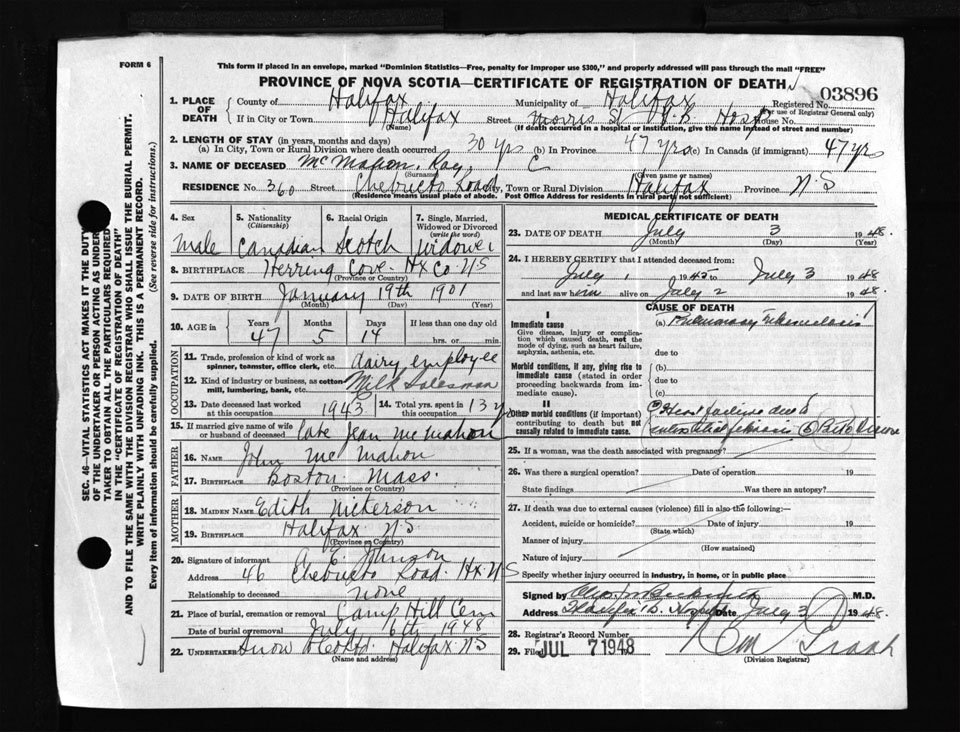 FORM 6
This form if placed in an envelope, marked "Dominion Statistics—Free, penalty for improper use $300," and properly addressed will pass through the mail "FREE"
PROVINCE OF NOVA SCOTIA—CERTIFICATE OF REGISTRATION OF DEATH
03896
1. PLACE OF DEATH { County of Halifax Municipality of Halifax Registered No. (For use of Registrar General only)
If in City or Town Halifax (Name) Street Morris St Hosp House No.
(If death occurred in a hospital or institution, give the name instead of street and number)
2. LENGTH OF STAY (in years, months and days)
(a) In City, Town or Rural Division where death occurred 30 yrs (b) In Province 47 yrs (c) In Canada (if immigrant) 47 yrs
3. NAME OF DECEASED McMahon, Ray C
(Surname) (Given name or names)
RESIDENCE No. 360 Street Chebucto Road City, Town or Rural Division Halifax Province N.S
(Residence means usual place of abode. Post Office Address for residents in rural parts not sufficient)
4. Sex Male
5. Nationality (Citizenship) Canadian
6. Racial Origin Scotch
7. Single, Married, Widowed or Divorced (write the word) Widower
8. BIRTHPLACE Herring Cove Hx Co N.S
(Province or Country)
9. DATE OF BIRTH January 19th 1901
(Month) (Day) (Year)
10. AGE in Years 47 Months 5 Days 14 If less than one day old hrs. or min.
OCCUPATION
11. Trade, profession or kind of work as spinner, teamster, office clerk, etc. dairy employee
12. Kind of industry or business, as cotton mill, lumbering, bank, etc. Milk Salesman
13. Date deceased last worked at this occupation 1943
14. Total yrs. spent in this occupation 13 yrs
15. If married give name of wife or husband of deceased late Jean McMahon
FATHER
16. Name John McMahon
17. Birthplace Boston Mass
(Province or Country)
MOTHER
18. Maiden Name Edith
19. Birthplace Halifax N.S
(Province or Country)
20. Signature of informant A. E. Johnson
Address 46 Chebucto Road Hx N.S
Relationship to deceased none
21. Place of burial, cremation or removal Camp Hill Cem
Date of burial or removal July 6th 1948
22. UNDERTAKER Snow & Co Ltd. Halifax N.S
(Name and address)
MEDICAL CERTIFICATE OF DEATH
23. DATE OF DEATH July 3 1948
(Month) (Day) (Year)
24. I HEREBY CERTIFY that I attended deceased from:
July 1 1948 to July 3 1948
and last saw him alive on July 2 1948.
CAUSE OF DEATH
I
Immediate cause
Give disease, injury or complication which caused death, not the mode of dying, such as heart failure, asphyxia, asthenia, etc.
(a) Pulmonary Tuberculosis
due to
Morbid conditions, if any, giving rise to immediate cause (stated in order proceeding backwards from immediate cause).
(b)
due to
(c)
II
Other morbid conditions (if important) contributing to death but not causally related to immediate cause.
Heart failure due to
25. If a woman, was the death associated with pregnancy?
26. Was there a surgical operation? Date of operation 19
State findings Was there an autopsy?
27. If death was due to external causes (violence) fill in also the following:—
Accident, suicide or homicide? Date of injury 19
(State which)
Manner of injury
(How sustained)
Nature of injury
Specify whether injury occurred in industry, in home, or in public place
Signed by M.D.
Address Halifax Date July 3 1948.
28. Registrar's Record Number
29. Filed JUL 7 1948
(Division Registrar)
SEC. 46—VITAL STATISTICS ACT MAKES IT THE DUTY
OF THE UNDERTAKER OR PERSON ACTING AS UNDERTAKER TO OBTAIN ALL THE PARTICULARS REQUIRED
IN THE "CERTIFICATE OF REGISTRATION OF DEATH"
AND TO FILE THE SAME WITH THE DIVISION REGISTRAR WHO SHALL ISSUE THE BURIAL PERMIT.
WRITE PLAINLY WITH UNFADING INK. THIS IS A PERMANENT RECORD.
Every item of information should be carefully supplied. (See reverse side for instructions.)